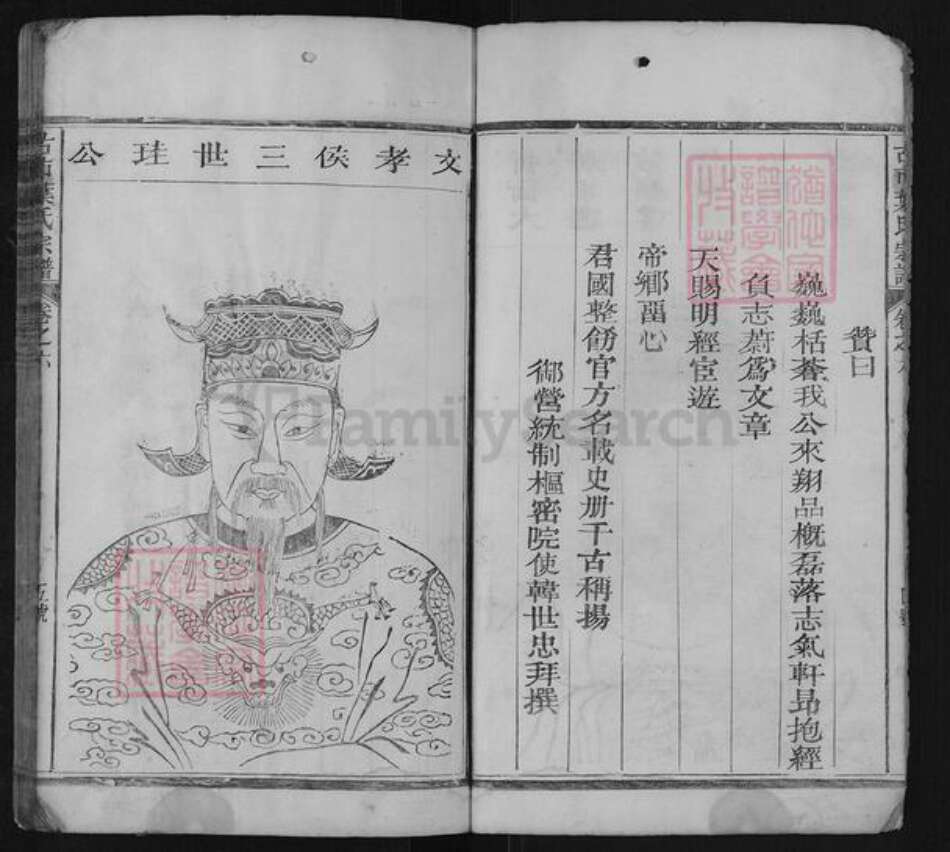 贊曰
巍巍栝蒼我公來翔品概磊落志氣軒昂抱經
負志蔚爲文章
天賜明經宦遊
帝鄉畱心
君國整飭官方名載史册千古稱揚
御營統制樞密院使韓世忠拜撰
文孝侯三世珪公
葉氏宗譜
卷之六
五號
FamilySearch